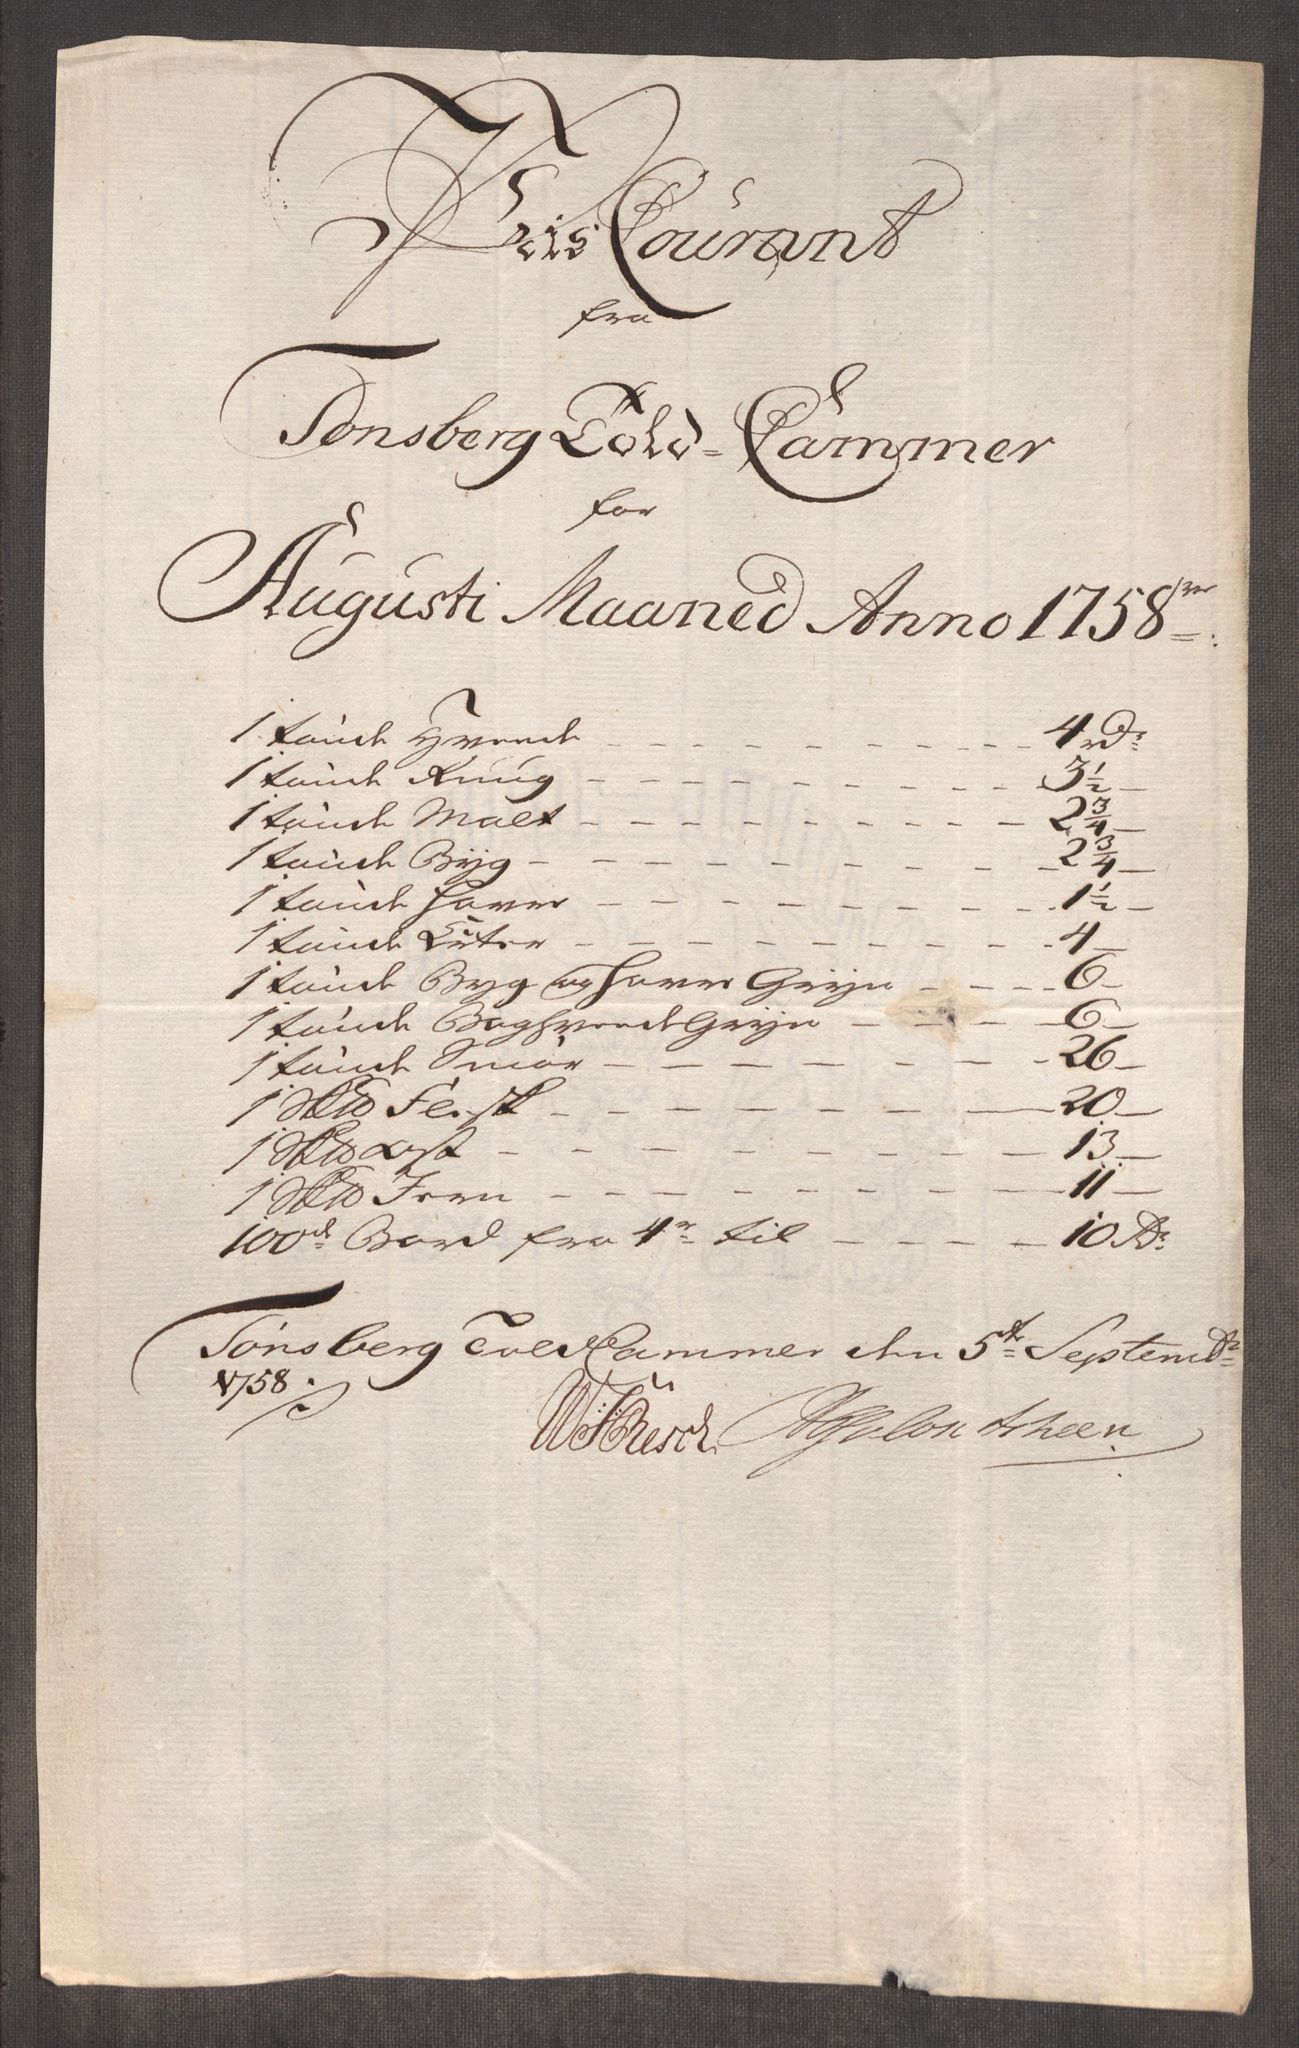 Priis Courant
fra
Tønsberg Told-Cammer
for
Augusti Maaned Anno 1758
1 tønde Hveede 4 rdr
1 tønde Rug 3 1/2
1 tønde Malt 2 3/4
1 tønde Byg 2 3/4
1 tønde Haver 1 1/2
1 tønde Erter 4
1 tønde Byg og Haver Gryn 6
1 tønde BoghveedeGryn 6
1 tønde Smør 26
1 Skd Flesk 20
1 Skd Ost 13
1 Skd Jern 11
100de Bord fra 4r til 10 Rdr
Tønsberg Told Cammer den 5te Septembr
1758.